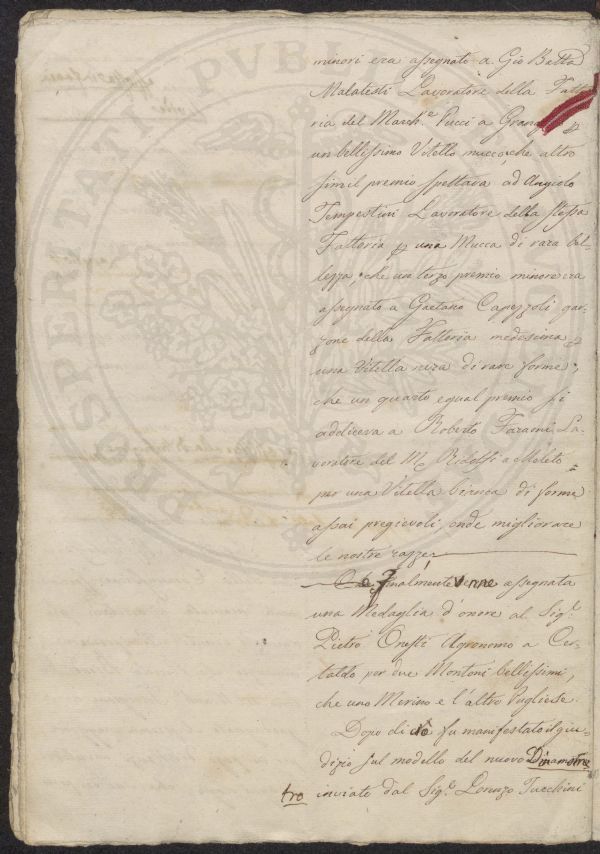 minori era assegnato a Gio Batta
Malatesti Lavoratore della Fatto-
ria del March.e Pucci a Granaj
un bellissimo Vitello mucco, che altro
simil premio spettava ad Angiolo
Tempestini Lavoratore della stessa
Fattoria p una Mucca di rara bel-
lezza; che un terzo premio minore era
assegnato a Gaetano Capezzoli gar-
zone della Fattoria medesima p
una Vitella nera di rare forme;
che un quarto equal premio si
addiceva a Roberto Faraoni La-
voratore del M.e Ridolfi a Meleto
per una Vitella bianca di forme
assai pregievoli, onde migliorare
le nostre razze;
e finalmente venne assegnata
una Medaglia d'onore al Sig.r
Pietro Onesti Agronomo a Cer-
taldo per due Montoni bellissimi,
che uno Merino e l'altro Pugliese.
Dopo di ciò fu manifestato il giu-
dizio sul modello del nuovo Dinamome
tro inviato dal Sig.r Lorenzo Turchini